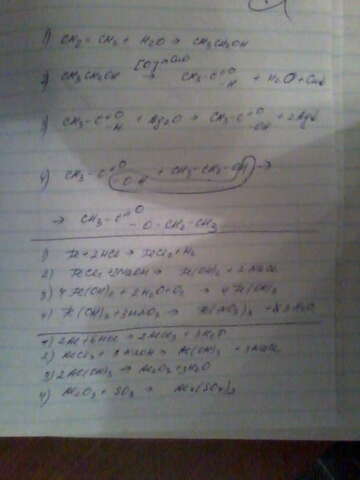 1) CH2 = CH2 + H2O → CH3CH2OH
2) CH3CH2OH [O]+CuO → CH3-C=O -H + H2O + Cu↓
3) CH3-C=O -H + Ag2O → CH3-C=O -OH + 2Ag↓
4) CH3-C=O -OH + CH3-CH2-OH →
→ CH3-C=O -O-CH2-CH3
1) Fe + 2HCl → FeCl2 + H2
2) FeCl2 + 2NaOH → Fe(OH)2 + 2NaCl
3) 4Fe(OH)2 + 2H2O + O2 → 4Fe(OH)3
4) Fe(OH)3 + 3HNO3 → Fe(NO3)3 + 3H2O
2) AlCl3 + 3NaOH → Al(OH)3 + 3NaCl
3) 2Al(OH)3 → Al2O3 + 3H2O
4) Al2O3 + SO3 → Al2(SO4)3